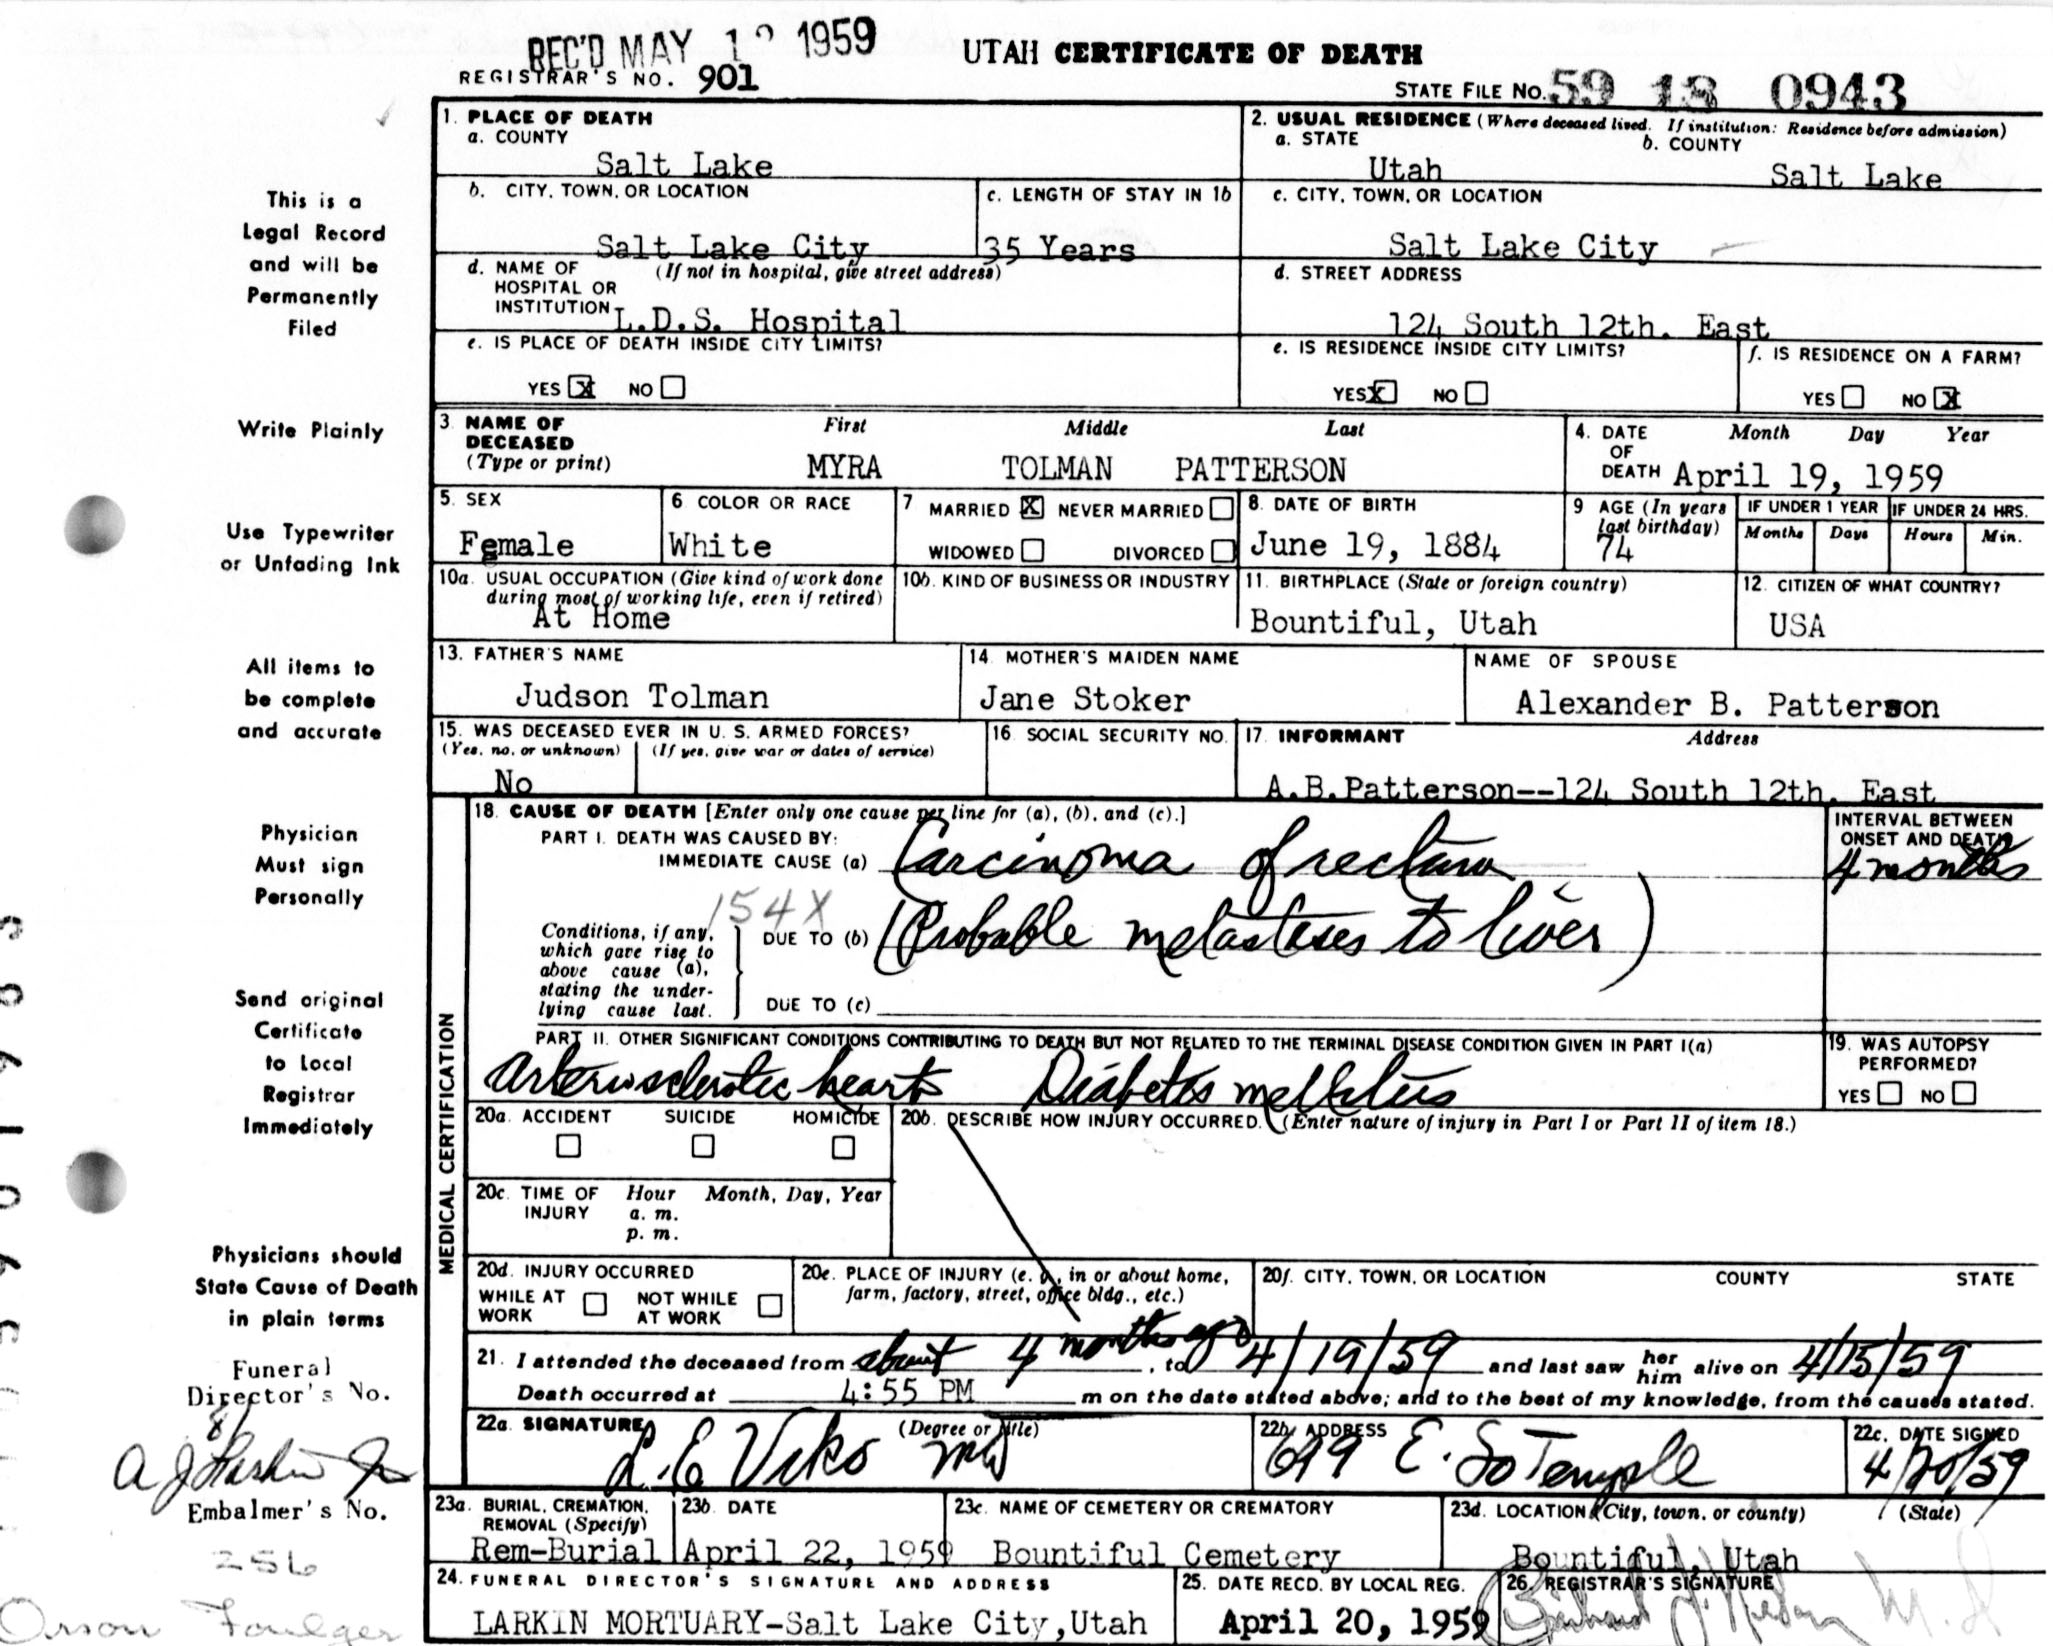 REC'D MAY 1 1959
UTAH CERTIFICATE OF DEATH
REGISTRAR'S NO. 901
STATE FILE NO. 59 18 0943
1. PLACE OF DEATH
a. COUNTY
Salt Lake
2. USUAL RESIDENCE (Where deceased lived. If institution: Residence before admission)
a. STATE b. COUNTY
Utah Salt Lake
b. CITY, TOWN, OR LOCATION
Salt Lake City
c. LENGTH OF STAY IN 1b
35 Years
c. CITY, TOWN, OR LOCATION
Salt Lake City
d. NAME OF (If not in hospital, give street address)
HOSPITAL OR
INSTITUTION L.D.S. Hospital
d. STREET ADDRESS
124 South 12th. East
e. IS PLACE OF DEATH INSIDE CITY LIMITS?
YES X NO
e. IS RESIDENCE INSIDE CITY LIMITS?
YES X NO
f. IS RESIDENCE ON A FARM?
YES NO X
3. NAME OF DECEASED
(Type or print)
First Middle Last
MYRA TOLMAN PATTERSON
4. DATE OF DEATH
Month Day Year
April 19, 1959
5. SEX
Female
6 COLOR OR RACE
White
7 MARRIED X NEVER MARRIED
WIDOWED DIVORCED
8. DATE OF BIRTH
June 19, 1884
9 AGE (In years
last birthday)
74
IF UNDER 1 YEAR
Months Days
IF UNDER 24 HRS.
Hours Min.
10a. USUAL OCCUPATION (Give kind of work done
during most of working life, even if retired)
At Home
10b. KIND OF BUSINESS OR INDUSTRY
11. BIRTHPLACE (State or foreign country)
Bountiful, Utah
12. CITIZEN OF WHAT COUNTRY?
USA
13. FATHER'S NAME
Judson Tolman
14. MOTHER'S MAIDEN NAME
Jane Stoker
NAME OF SPOUSE
Alexander B. Patterson
15. WAS DECEASED EVER IN U. S. ARMED FORCES?
(Yes, no, or unknown) (If yes, give war or dates of service)
No
16. SOCIAL SECURITY NO.
17. INFORMANT Address
A.B.Patterson--124 South 12th. East
MEDICAL CERTIFICATION
18. CAUSE OF DEATH [Enter only one cause per line for (a), (b), and (c).]
PART I. DEATH WAS CAUSED BY:
IMMEDIATE CAUSE (a) Carcinoma of rectum
INTERVAL BETWEEN
ONSET AND DEATH
4 months
154X
Conditions, if any,
which gave rise to
above cause (a),
stating the under-
lying cause last.
DUE TO (b) (Probable metastases to liver)
DUE TO (c)
PART II. OTHER SIGNIFICANT CONDITIONS CONTRIBUTING TO DEATH BUT NOT RELATED TO THE TERMINAL DISEASE CONDITION GIVEN IN PART I(a)
Arteriosclerotic heart Diabetes mellitus
19. WAS AUTOPSY
PERFORMED?
YES NO
20a. ACCIDENT SUICIDE HOMICIDE
20b. DESCRIBE HOW INJURY OCCURRED. (Enter nature of injury in Part I or Part II of item 18.)
20c. TIME OF INJURY
Hour Month, Day, Year
a. m.
p. m.
20d. INJURY OCCURRED
WHILE AT WORK NOT WHILE AT WORK
20e. PLACE OF INJURY (e. g., in or about home,
farm, factory, street, office bldg., etc.)
20f. CITY, TOWN, OR LOCATION COUNTY STATE
21. I attended the deceased from about 4 months ago, to 4/19/59 and last saw her him alive on 4/15/59
Death occurred at 4:55 PM m on the date stated above; and to the best of my knowledge, from the causes stated.
22a. SIGNATURE (Degree or title)
L. E Viko MD
22b. ADDRESS
699 E. So Temple
22c. DATE SIGNED
4/20/59
23a. BURIAL, CREMATION,
REMOVAL (Specify)
Rem-Burial
23b. DATE
April 22, 1959
23c. NAME OF CEMETERY OR CREMATORY
Bountiful Cemetery
23d. LOCATION (City, town, or county) (State)
Bountiful, Utah
24. FUNERAL DIRECTOR'S SIGNATURE AND ADDRESS
LARKIN MORTUARY-Salt Lake City,Utah
25. DATE RECD. BY LOCAL REG.
April 20, 1959
26. REGISTRAR'S SIGNATURE
This is a
Legal Record
and will be
Permanently
Filed
Write Plainly
Use Typewriter
or Unfading Ink
All items to
be complete
and accurate
Physician
Must sign
Personally
Send original
Certificate
to Local
Registrar
Immediately
Physicians should
State Cause of Death
in plain terms
Funeral
Director's No.
81
A J Larkin Jr
Embalmer's No.
256
Orson Foulger